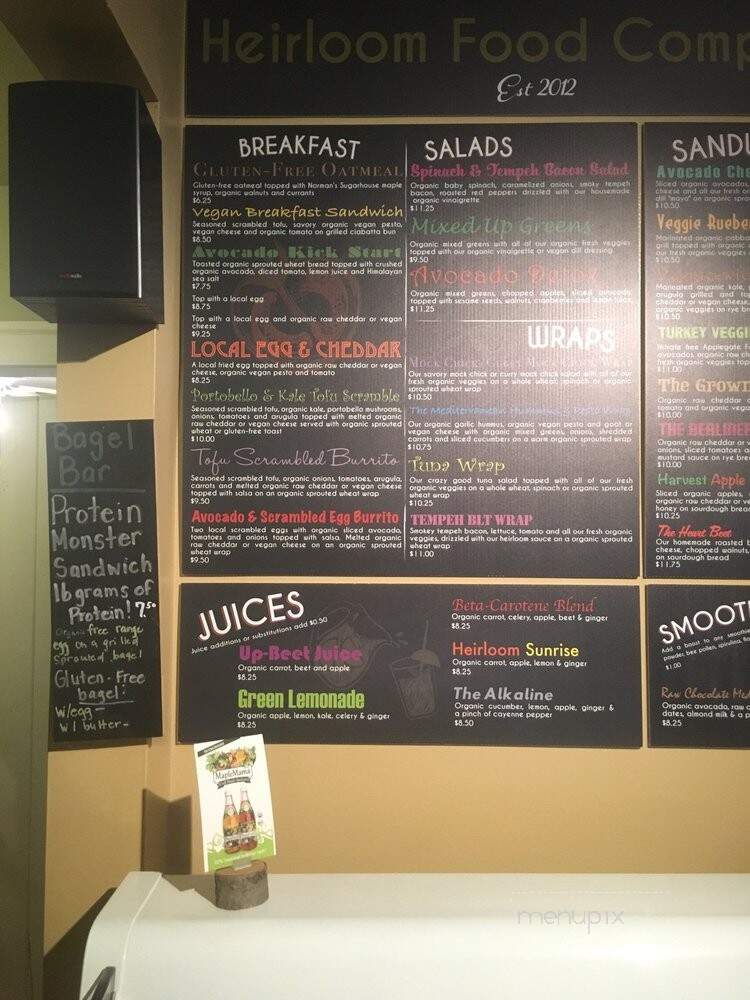 Heirloom Food Comp
Est 2012
BREAKFAST
GLUTEN-FREE OATMEAL
Gluten-free oatmeal topped with Norman's Sugarhouse maple
syrup, organic walnuts and currants
$6.25
Vegan Breakfast Sandwich
Seasoned scrambled tofu, savory organic vegan pesto,
vegan cheese and organic tomato on grilled ciabatta bun
$8.50
Avocado Kick Start
Toasted organic sprouted wheat bread topped with crushed
organic avocado, diced tomato, lemon juice and Himalayan
sea salt
$7.75
Top with a local egg
$8.75
Top with a local egg and organic raw cheddar or vegan
cheese
$9.25
LOCAL EGG & CHEDDAR
A local fried egg topped with organic raw cheddar or vegan
cheese, organic vegan pesto and tomato
$8.25
Portobello & Kale Tofu Scramble
Seasoned scrambled tofu, organic kale, portabello mushrooms,
onions, tomatoes and arugula topped with melted organic
raw cheddar or vegan cheese served with organic sprouted
wheat or gluten-free toast
$10.00
Tofu Scrambled Burrito
Seasoned scrambled tofu, organic onions, tomatoes, arugula,
carrots and melted organic raw cheddar or vegan cheese
topped with salsa on an organic sprouted wheat wrap
$9.50
Avocado & Scrambled Egg Burrito
Two local scrambled eggs with organic sliced avocado,
tomatoes and onions topped with salsa. Melted organic
raw cheddar or vegan cheese on an organic sprouted
wheat wrap
$9.50
SALADS
Spinach & Tempeh Bacon Salad
Organic baby spinach, caramelized onions, smoky tempeh
bacon, roasted red peppers drizzled with our housemade
organic vinaigrette
$11.25
Mixed Up Greens
Organic mixed greens with all of our organic fresh veggies
topped with our organic vinaigrette or vegan dill dressing
$9.50
Avocado
Organic mixed greens, chopped apples, sliced avocado
topped with sesame seeds, walnuts, cranberries and lemon juice
$11.25
WRAPS
Our savory mock chick or curry mock chick salad with all of our
fresh organic veggies on a whole wheat, spinach or organic
sprouted wheat wrap
$10.50
The Mediterranean Hummus & Pesto Wrap
Our organic garlic hummus, organic vegan pesto and goat or
vegan cheese with organic mixed greens, onions, shredded
carrots and sliced cucumbers on a warm organic sprouted wrap
$10.75
Tuna Wrap
Our crazy good tuna salad topped with all of our fresh
organic veggies on a whole wheat, spinach or organic sprouted
wheat wrap
$10.25
TEMPEH BLT WRAP
Smokey tempeh bacon, lettuce, tomato and all our fresh organic
veggies, drizzled with our heirloom sauce on a organic sprouted
wheat wrap
$11.00
SANDW
Avocado Che
Sliced organic avocados,
cheese and all our fresh or
dill "mayo" on an organic
$10.50
Veggie Rueben
Marinated organic cabba
grill topped with organic
our fresh organic veggies
$10.50
Marinated organic kale,
arugula grilled and
cheddar or vegan cheese,
organic veggies on rye bre
$10.50
TURKEY VEGGI
Nitrate free Applegate F
avocados, organic raw ch
fresh organic veggies top
$11.00
The Growin
Organic raw cheddar
tomato and organic vega
$10.00
THE BERLINER
Organic raw cheddar or v
onions, sliced tomatoes a
mustard sauce on rye bre
$10.00
Harvest Apple
Sliced organic apples,
organic raw cheddar or ve
honey on sourdough bread
$10.25
The Heart Beet
Our homemade roasted b
cheese, chopped walnuts,
on sourdough bread
$11.75
JUICES
Juice additions or substitutions add $0.50
Up-Beet Juice
Organic carrot, beet and apple
$8.25
Green Lemonade
Organic apple, lemon, kale, celery & ginger
$8.25
Beta-Carotene Blend
Organic carrot, celery, apple, beet & ginger
$8.25
Heirloom Sunrise
Organic carrot, apple, lemon & ginger
$8.25
The Alkaline
Organic cucumber, lemon, apple, ginger &
a pinch of cayenne pepper
$8.50
SMOOTH
Add a boost to any smoothie
powder, bee pollen, spirulina, fla
$1.00
Raw Chocolate Med
Organic avocado, raw c
dates, almond milk & a p
$8.25
Bagel
Bar
Protein
Monster
Sandwich
16 grams of
Protein! 7.50
Organic free range
egg on a grilled
sprouted bagel
Gluten-Free
bagel:
w/egg-
w/ butter-
MapleMama
menupix